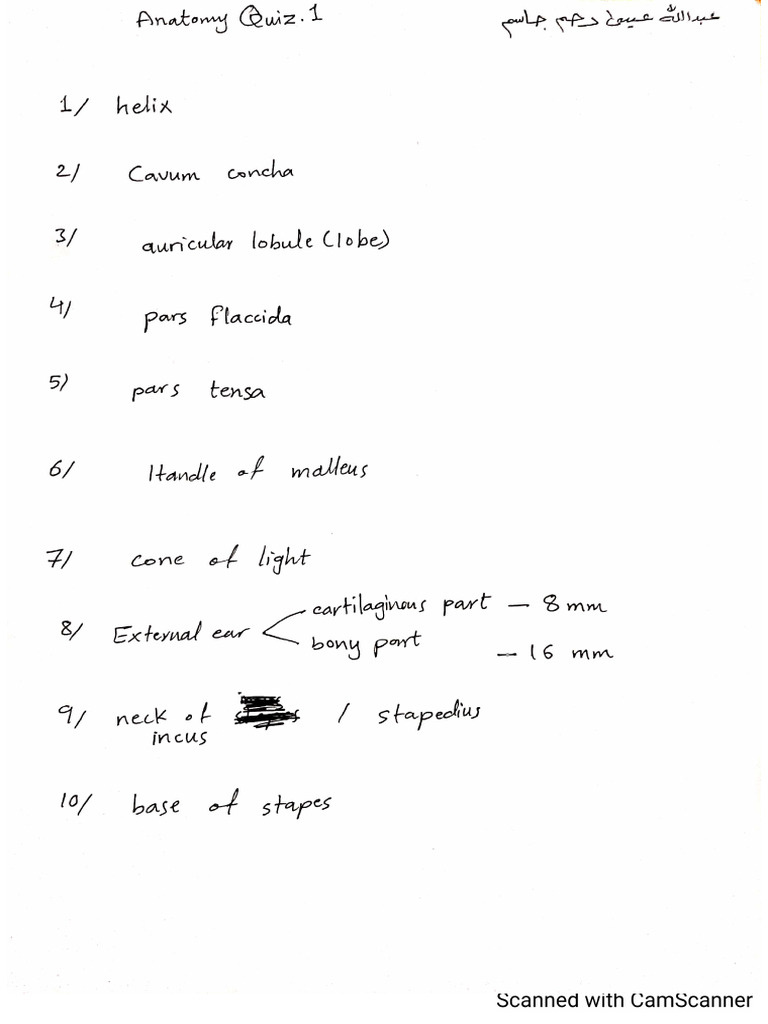 Anatomy Quiz.1
عبدالله رحيم جاسم
1/ helix
2/ Cavum concha
3/ auricular lobule (lobe)
4/ pars flaccida
5) pars tensa
6/ Handle of malleus
7/ cone of light
8/ External ear
cartilaginous part – 8 mm
bony part – 16 mm
9/ neck of / stapedius
incus
10/ base of stapes
Scanned with CamScanner